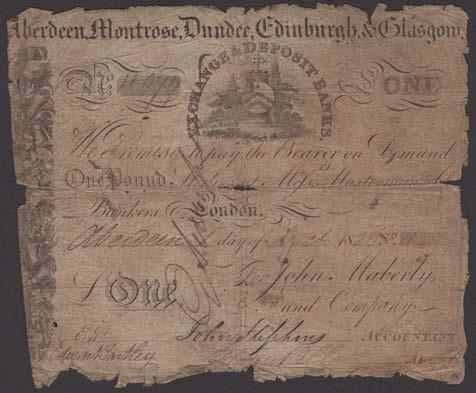 Aberdeen, Montrose, Dundee, Edinburgh, & Glasgow,
EXCHANGE & DEPOSIT BANKS.
No
£ ONE
We Promise to pay the Bearer on Demand
One Pound
Bankers, London.
Aberdeen day of 18 No
£ One For John Maberly
and Company
John Stephens ACCOUNTANT.
Entd.
AGENT.